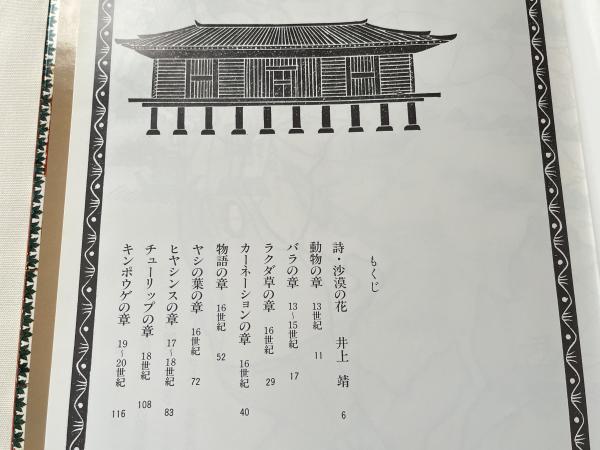 もくじ
詩・沙漠の花 井上 靖 6
動物の章 13世紀 11
バラの章 13〜15世紀 17
ラクダ草の章 16世紀 29
カーネーションの章 16世紀 40
物語の章 16世紀 52
ヤシの葉の章 16世紀 72
ヒヤシンスの章 17〜18世紀 83
チューリップの章 18世紀 108
キンポウゲの章 19〜20世紀 116